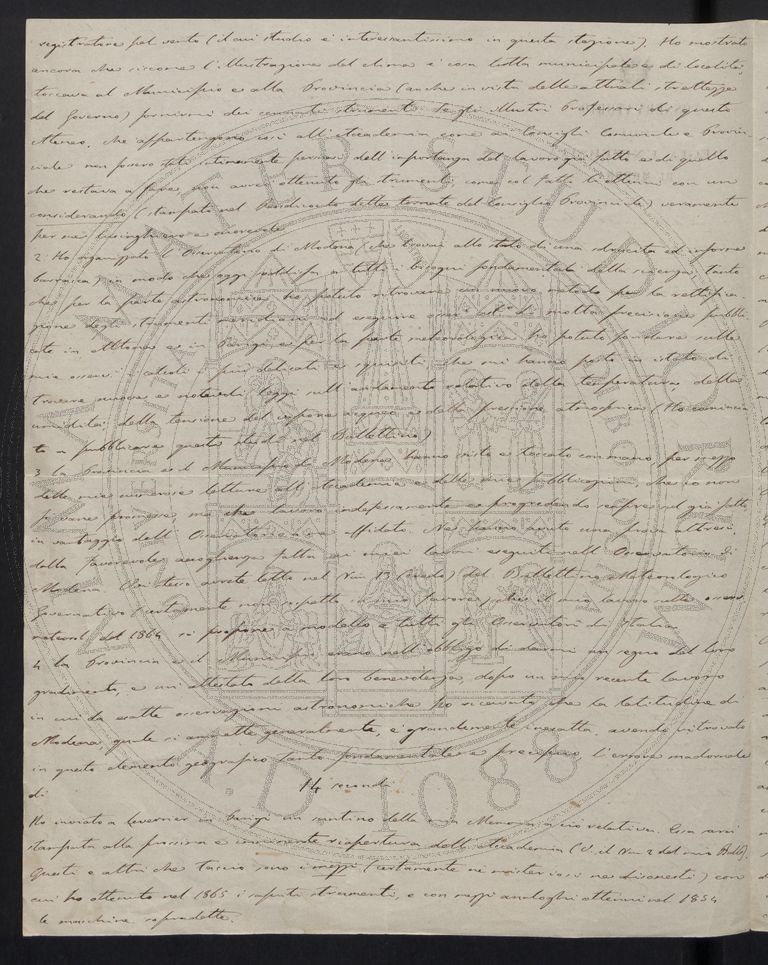 registratore pel vento (il cui studio è interessantissimo in questa stagione). Ho mostrato
ancora che siccome l'illustrazione del clima è cosa tutta municipale e di località,
toccava al Municipio e alla Provincia (anche in vista delle attuali strettezze
del Governo) provvedermi dei strumenti. Se gli Illustri Professori di questo
Ateneo, che appartengono così all'Accademia come ai Consigli Comunale e Provin-
ciale non fossero stati intimamente persuasi dell'importanza del lavoro già fatto e di quello
che restava a fare, non avrei ottenuto gli strumenti, come col fatto li ottenni con un
considerando (stampato nel Rendiconto delle tornate del Consiglio Provinciale) veramente
per me lusinghiero e onorevole.
2. Ho organizzato l'Osservatorio di Modena (che trovai allo stato di una sdruscita ed informe
baracca) in modo che oggi soddisfa a tutti i bisogni fondamentali della scienza, tanto
che per la parte astronomica ho potuto ritrovare un nuovo metodo per la rettifica-
zione degli strumenti meridiani ed eseguire osserv. astr. di molta precisione pubbli-
cate in Altona e in Parigi, e per la parte meteorologica ho potuto fondare sulle
mie osserv. i calcoli i più delicati e squisiti che mi hanno posto in istato di
trovare nuove e notevoli leggi sull'andamento relativo della temperatura, della
umidità, della tensione del vapore acqueo, e della pressione atmosferica (Ho comincia-
to a pubblicare questi studi nel Bullettino)
3. La Provincia e il Municipio di Modena hanno visto e toccato con mano, per mezzo
delle mie numerose letture all'Accademia e delle mie pubblicazioni, che io non
fo vane promesse, ma che lavoro indefessamente e progredendo sempre nel già fatto,
in vantaggio dell'Osservatorio a me affidato. Ne hanno avuto una prova altresì
dalla favorevole accoglienza fatta ai miei lavori eseguiti nell'Osservatorio di
Modena. Voi stesso avrete letto nel Num. 13 del Bullettino Meteorologico
Governativo (certamente non sospetto in mio favore) che il mio lavoro sulle osserv.
meteorol. del 1864 si propone a modello a tutti gli Osservatori di Italia.
4. La Provincia e il Municipio erano nell'obbligo di darmi un segno del loro
gradimento, e un attestato della loro benevolenza, dopo un mio recente lavoro
in cui da esatte osservazioni astronomiche ho ricavato che la latitudine di
Modena, quale si ammette generalmente, è grandemente inesatta, avendo ritrovato
in questo elemento geografico tanto fondamentale e precipuo, l'errore madornale
di
14 secondi
Ho inviato a Leverrier in Parigi un suntino della mia Memoria a ciò relativa. Essa sarà
stampata alla prossima e imminente riapertura dell'Accademia (V. il Num 2 del mio Bull.).
Questi e altri che taccio sono i mezzi (certamente né misteriosi né disonesti) con
cui ho ottenuto nel 1865 i saputi strumenti, e con mezzi analoghi ottenni nel 1864
le macchine sopradette.
ALMA MATER STUDIORUM
A.D. 1088